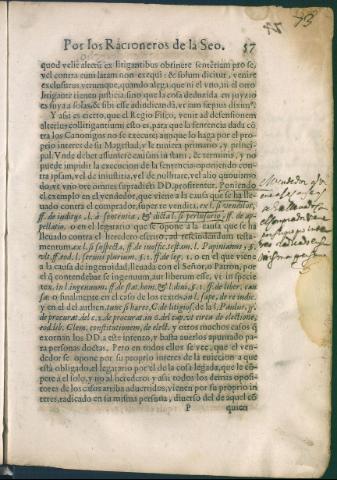 Por los Racioneros de la Seo. 57
quod velit alterū ex litigantibus obtinere sententiam pro se,
vel contra eum latam non exequi: & solum dicitur, venire
exclusurus verumque, quando alega, que ni el vno, ni el otro
litigante tienen justicia sino que la cosa deducida en juyzio
es suya a solas, & sibi esse adiudicandā, vt cum sæpius diximꝰ.
Y assi es cierto, que el Regio Fisco, venit ad defensionem
alterius collitigantium: esto es, para que la sentencia dada cō
tra los Canonigos no se execute; aunque lo haga por el pro
prio interes de su Magestad, y le llamen tercero, y princi
pal. Vnde debet assumere causam in statu, & terminis, y no
puede impidir la execucion de la sentencia oponiendo con
tra ipsam, vel de iniustitia, vel de nullitate, vel alio quouismo
do, vt vno ore omnes supradicti DD. profitentur. Poniendo
el exemplo en el vendedor, que viene a la causa que se ha lle
uado contra el comprador, super re vendita, ex l. si venditor,
ff. de iudicijs. l. à sententia, & dicta l. si perlusorio, ff. de ap-
pellatio. o en el legatario que se opone a la causa que se ha
lleuado contra el heredero escrito, ad rescindendum testa-
mentum, ex l. si suspecta, ff. de inoffic. testam. l. Papinianus, §.
vlt. ff. eod. l. seruus plurium, §. 1. ff. de leg. 1. o en el que viene
a la causa de ingenuidad, lleuada con el Señor, o Patron, por
el q̄ contendebat se ingenuum, aut liberum esse, vt in specie
tex. in l. ingenuum, ff. de stat. hom. & l. dini, §. 1. ff. de liber. cau
sa. o finalmente en el caso de los textos in l. sæpe, de re iudic.
y en el del authen. nunc si hæres, C. de litigios. de la l. Paulus,
de procurat. del c. 2. de procurat. in 6. del cap. vt circa de electione,
eod. lib. Clem. constitutionem, de elect. y otros muchos casos q̄
exornan los DD. a este intento, y basta auerlos apuntado pa
ra personas doctas. Pero en todos ellos se vee, que el ven-
dedor se opone por su proprio interes de la euiccion a que
está obligado, el legatario por el de la cosa legada, que le cō
pete à solo, y no al heredero; y assi todos los demas oposi-
tores de los casos arriba aduertidos, vienen por su proprio in
terres, radicado en su misma persona, diuerso del de aquel cō
P quien